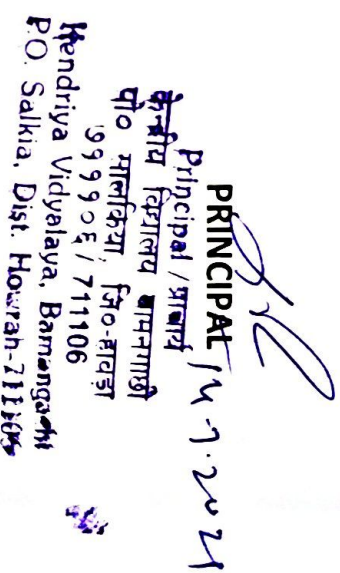 PRINCIPAL
Principal / प्राचार्य
केन्द्रीय विद्यालय बामनगाछी
पो० सालकिया, जि०-हावड़ा
७१११०६ / 711106
Kendriya Vidyalaya, Bamangachi
P.O. Salkia, Dist. Howrah-711106